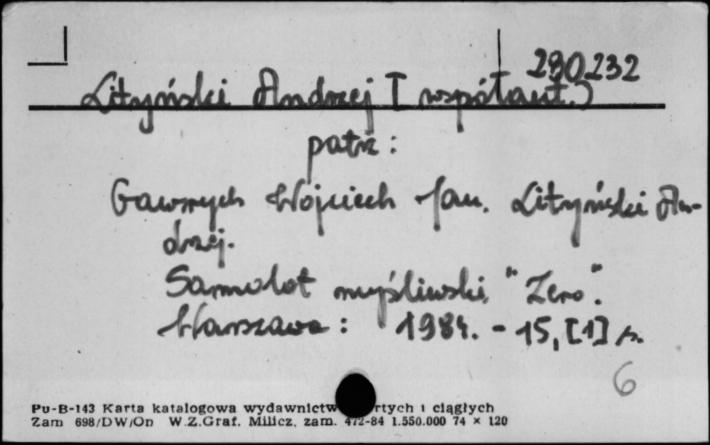 290232
Lityński Andrzej [współaut.]
patrz:
Gawrych Wojciech Jan. Lityński An-
drzej.
Samolot myśliwski "Zero".
Warszawa: 1984. - 15, [1] s.
6
Pu-B-143 Karta katalogowa wydawnictw rtych i ciągłych
Zam 698/DW/On W.Z.Graf. Milicz, zam. 472-84 1.550.000 74 × 120